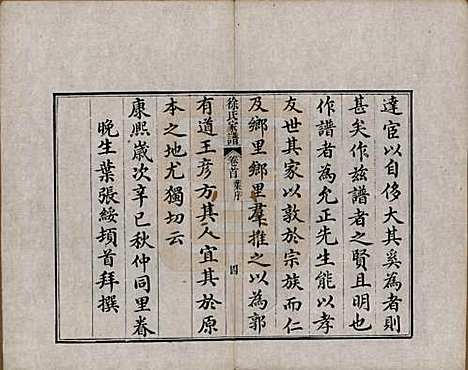 達宦以自侈大其奚為者則
甚矣作茲譜者之賢且明也
作譜者為允正先生能以孝
友世其家以敦於宗族而仁
徐氏家譜 卷首葉序 四
及鄉里鄉里羣推之以為郭
有道王彥方其人宜其於原
本之地尤獨切云
康熙歲次辛巳秋仲同里眷
晚生葉張綬頓首拜撰